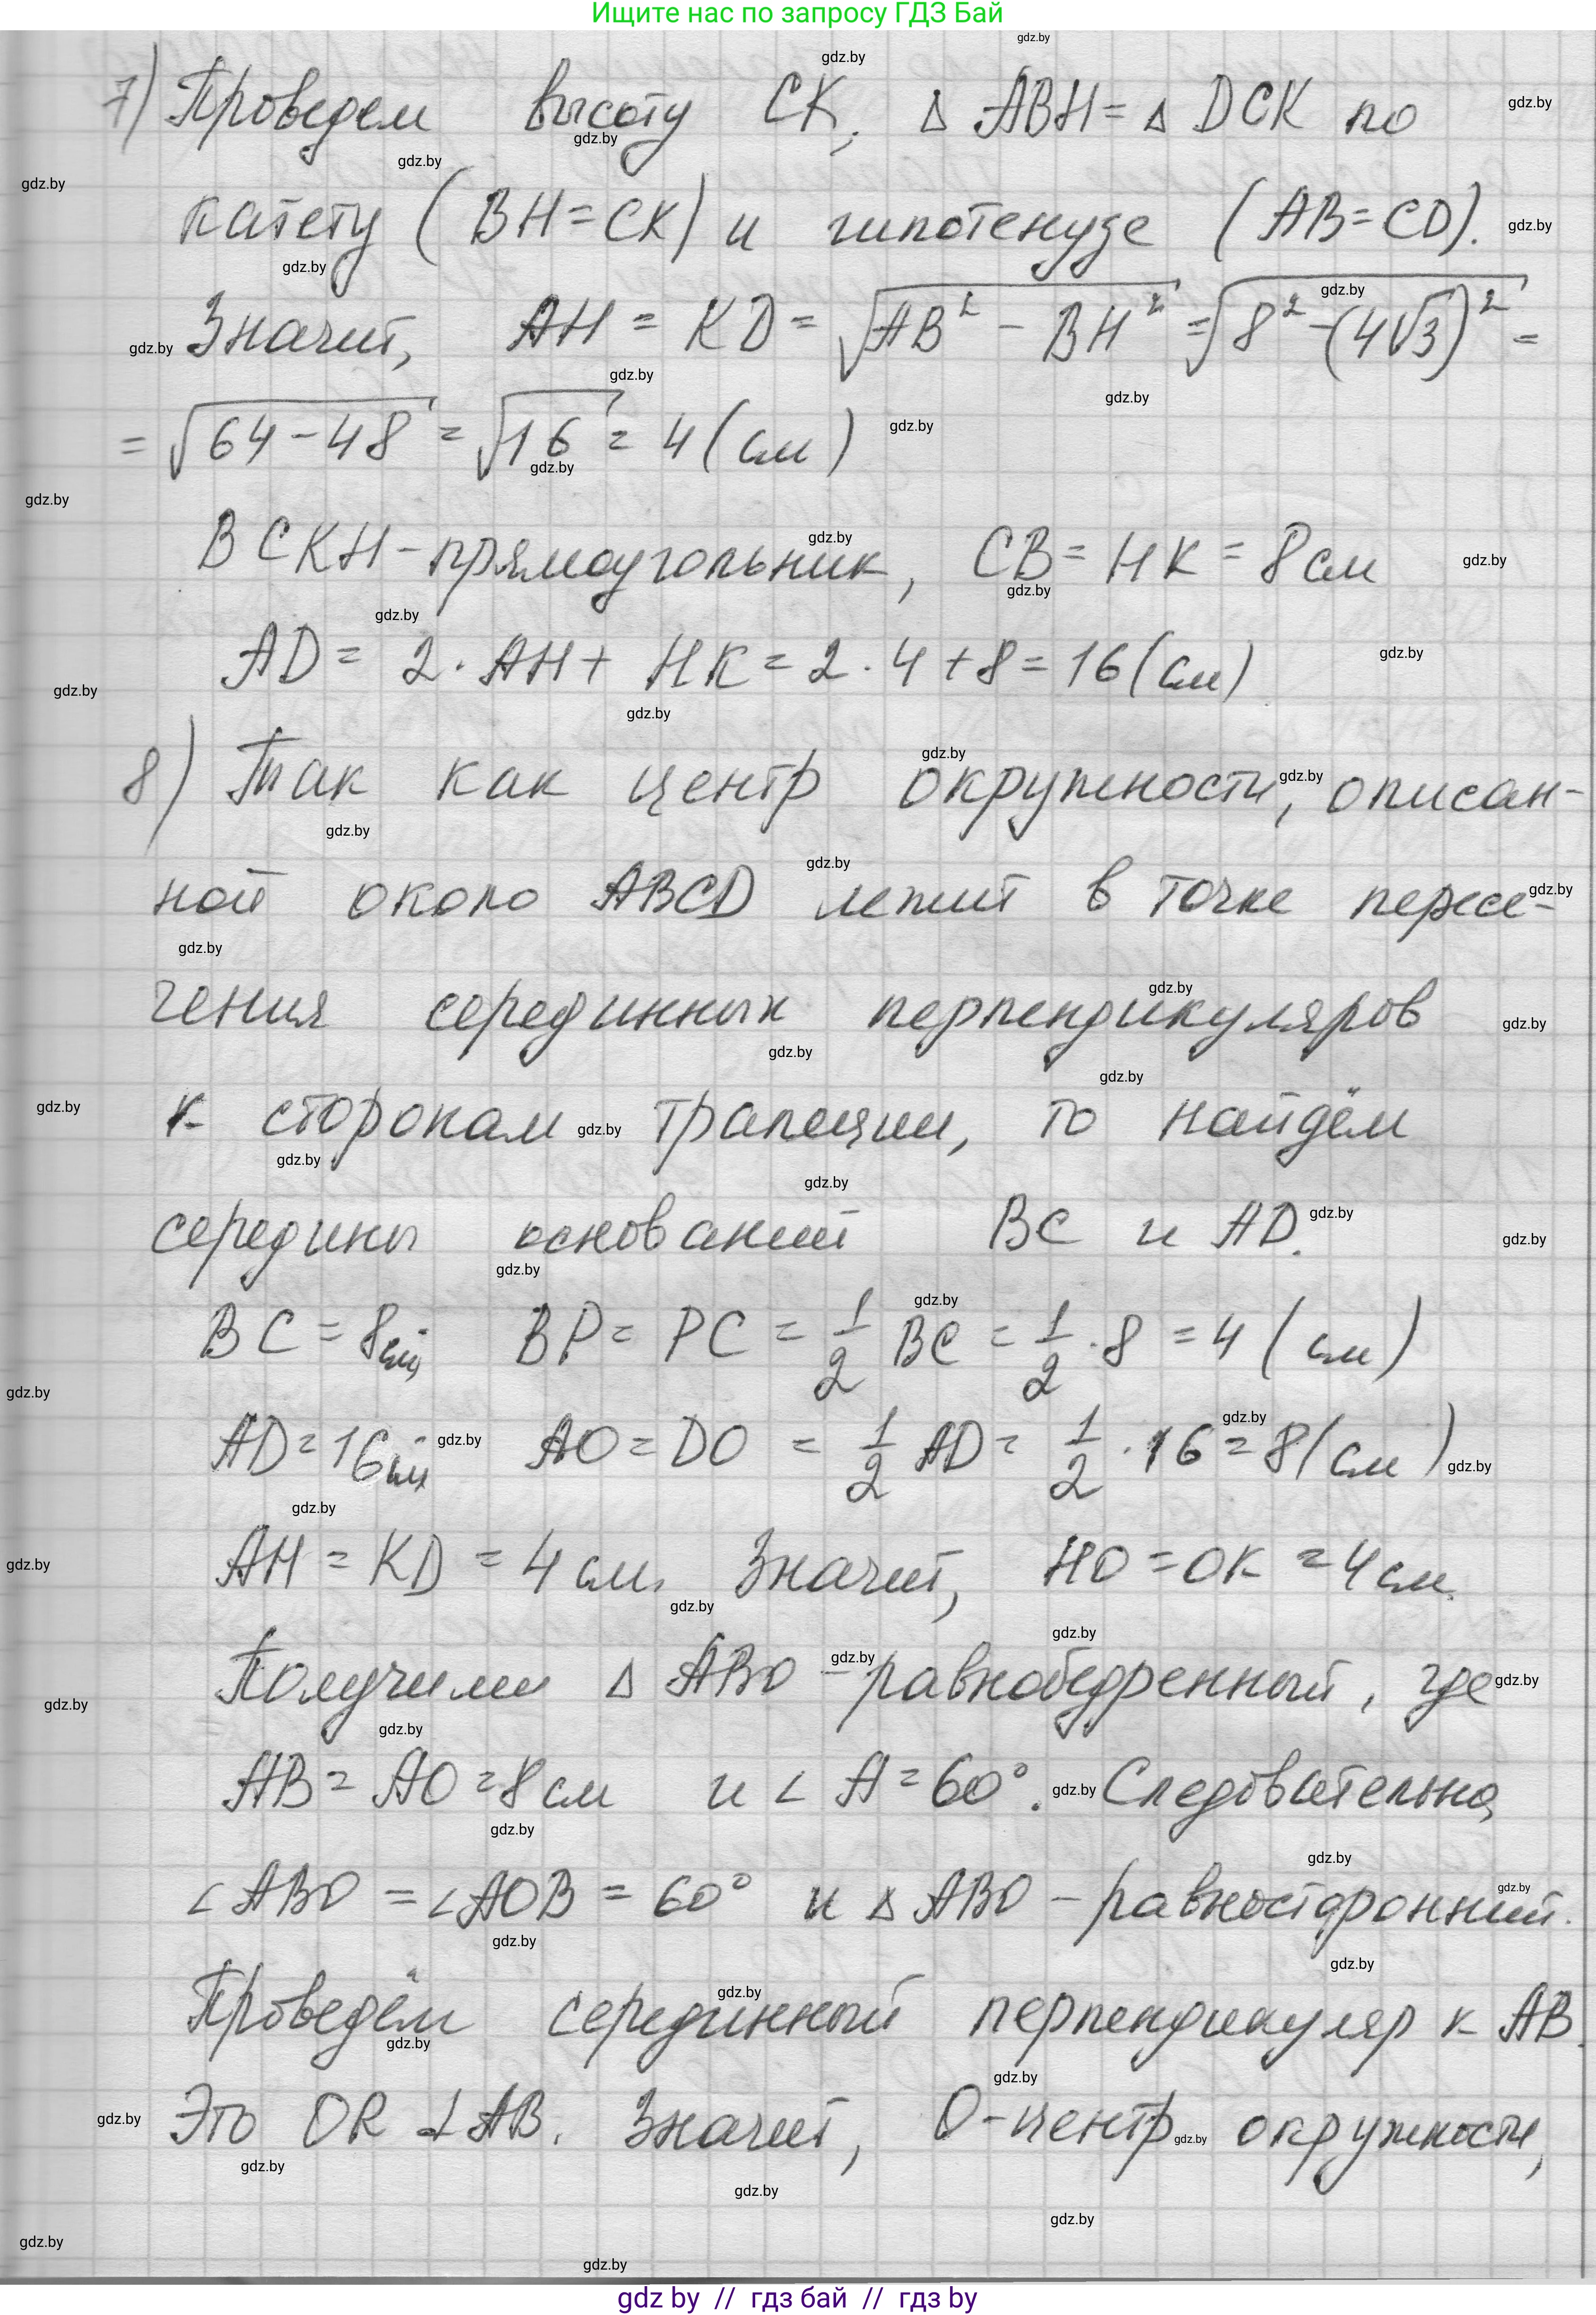 Ищите нас по запросу ГДЗ Бай
7) Проведем высоту CK, Δ ABH = Δ DCK по
катету (BH = CK) и гипотенузе (AB = CD).
Значит, AH = KD = √(AB² - BH²) = √(8² - (4√3)²) =
= √(64 - 48) = √16 = 4 (см)
BCKH - прямоугольник, CB = HK = 8 см
AD = 2 · AH + HK = 2 · 4 + 8 = 16 (см)
8) Так как центр окружности, описан-
ной около ABCD лежит в точке пересе-
чения серединных перпендикуляров
к сторонам трапеции, то найдём
середины оснований BC и AD.
BC = 8 см, BP = PC = 1/2 BC = 1/2 · 8 = 4 (см)
AD = 16 см AO = DO = 1/2 AD = 1/2 · 16 = 8 (см)
AH = KD = 4 см. Значит, HO = OK = 4 см.
Получили Δ ABO - равнобедренный, где
AB = AO = 8 см и ∠ A = 60°. Следовательно,
∠ ABO = ∠ AOB = 60° и Δ ABO - равносторонний.
Проведём серединный перпендикуляр к AB.
Это OR ⊥ AB. Значит, O - центр окружности,
gdz by // гдз бай // гдз by